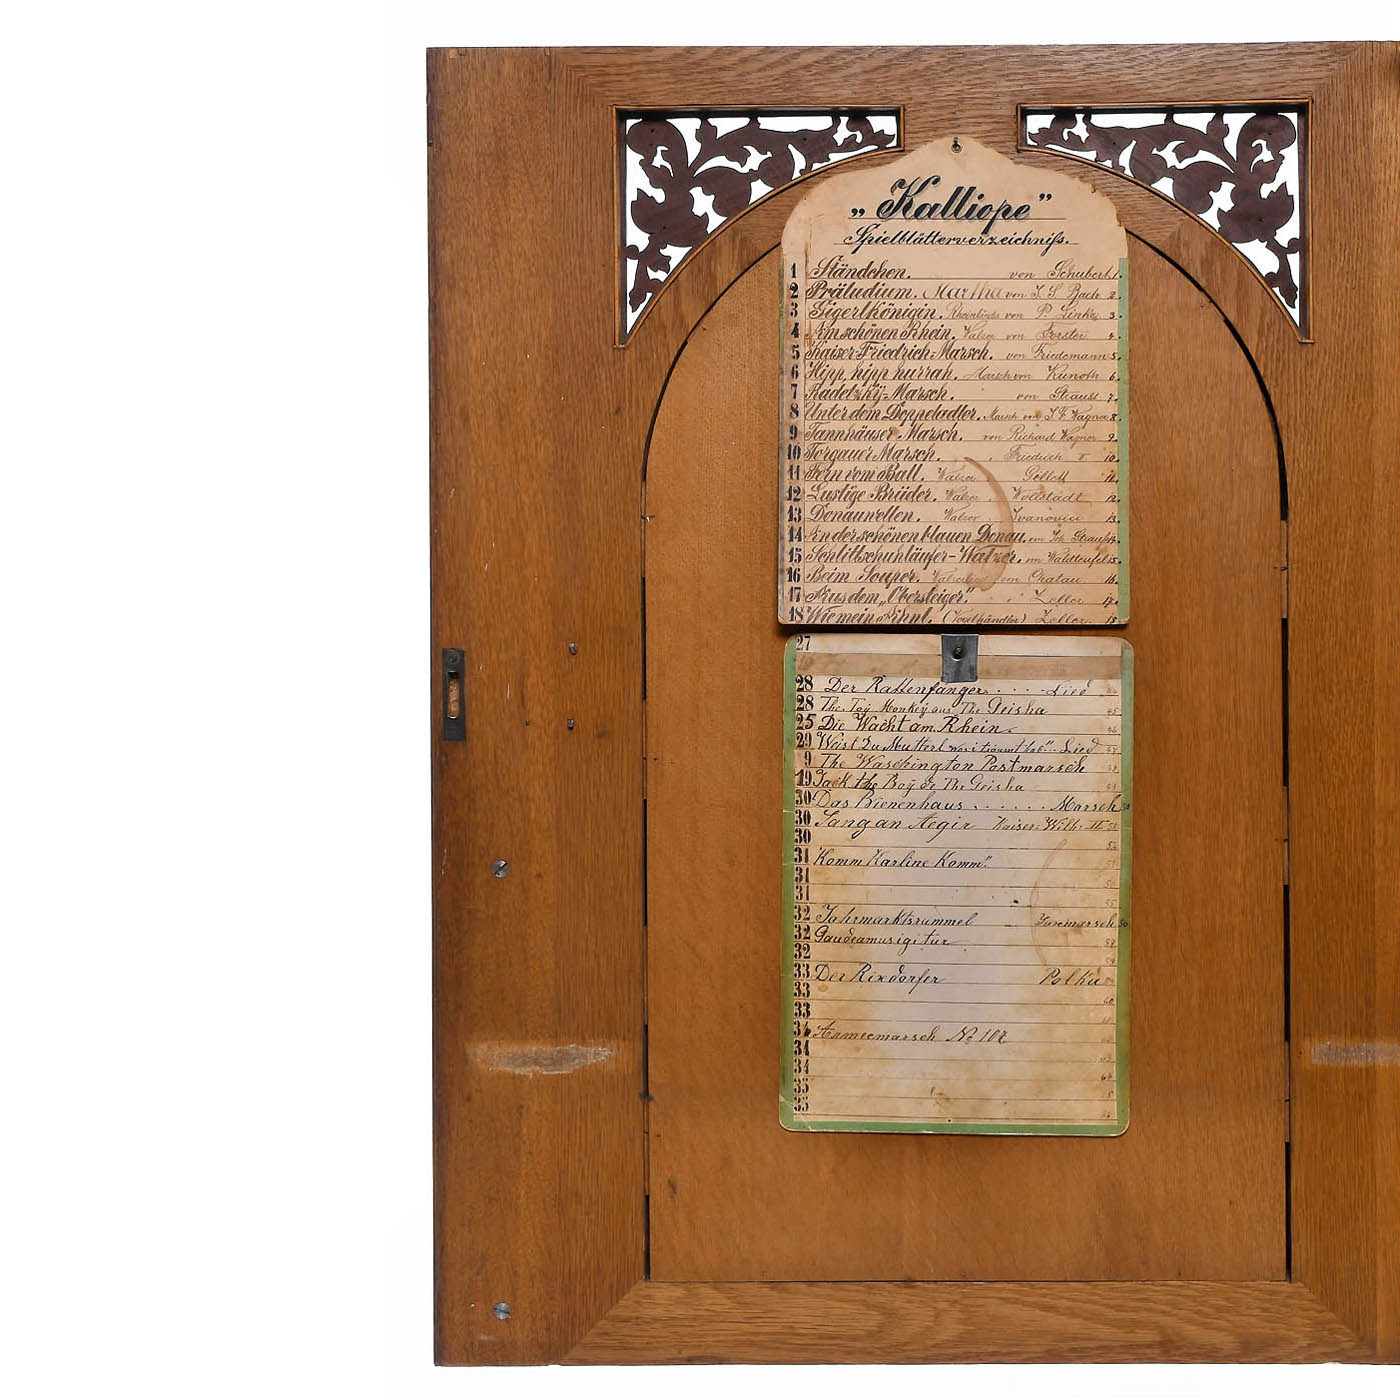 „Kalliope"
Spielblätterverzeichniß.
1 Ständchen. von Schubert. 1.
2 Präludium. Martha von J. S. Bach 2.
3 Gigerlkönigin. Rheinländer von P. Linke 3.
4 Am schönen Rhein. Walzer von Forster 4.
5 Kaiser-Friedrich-Marsch. von Friedemann 5.
6 Hipp, hipp hurrah. Marsch von Kunoth 6.
7 Radetzky-Marsch. " von Strauss 7.
8 Unter dem Doppeladler. Marsch von J. F. Wagner 8.
9 Tannhäuser-Marsch. von Richard Wagner 9.
10 Torgauer Marsch. " Friedrich II 10.
11 Fern vom Ball. Walzer Gillett 11.
12 Lustige Brüder. Walzer " Vollstädt 12.
13 Donauwellen. Walzer " Ivanovici 13.
14 An der schönen blauen Donau. von Joh. Strauß 14.
15 Schlittschuhläufer-Walzer. von Waldteufel 15.
16 Beim Souper. von 16.
17 Aus dem „Obersteiger". " " Zeller 17.
18 Wie mein Ahnl. (Vogelhändler) Zeller. 18
27
28 Der Rattenfänger. . . . . Lied
28 The Toy Monkey aus The Geisha 45
25 Die Wacht am Rhein. 46
29 Weist Du Mutterl was i träumt hab" Lied
9 The Waschington Postmarsch
19 Jack the Boy de The Geisha
30 Das Bienenhaus . . . . . . Marsch 50
30 Sang an Aegir Kaiser Wilh. II 51
30 52
31 "Komm Karline Komm".
31
31 55
32 Jahrmarktsrummel Juxmarsch
32 Gaudeamus igitur
32
33 Der Rixdorfer Polka
33 60
33
34 Armeemarsch No 107
34
34 64
35
35